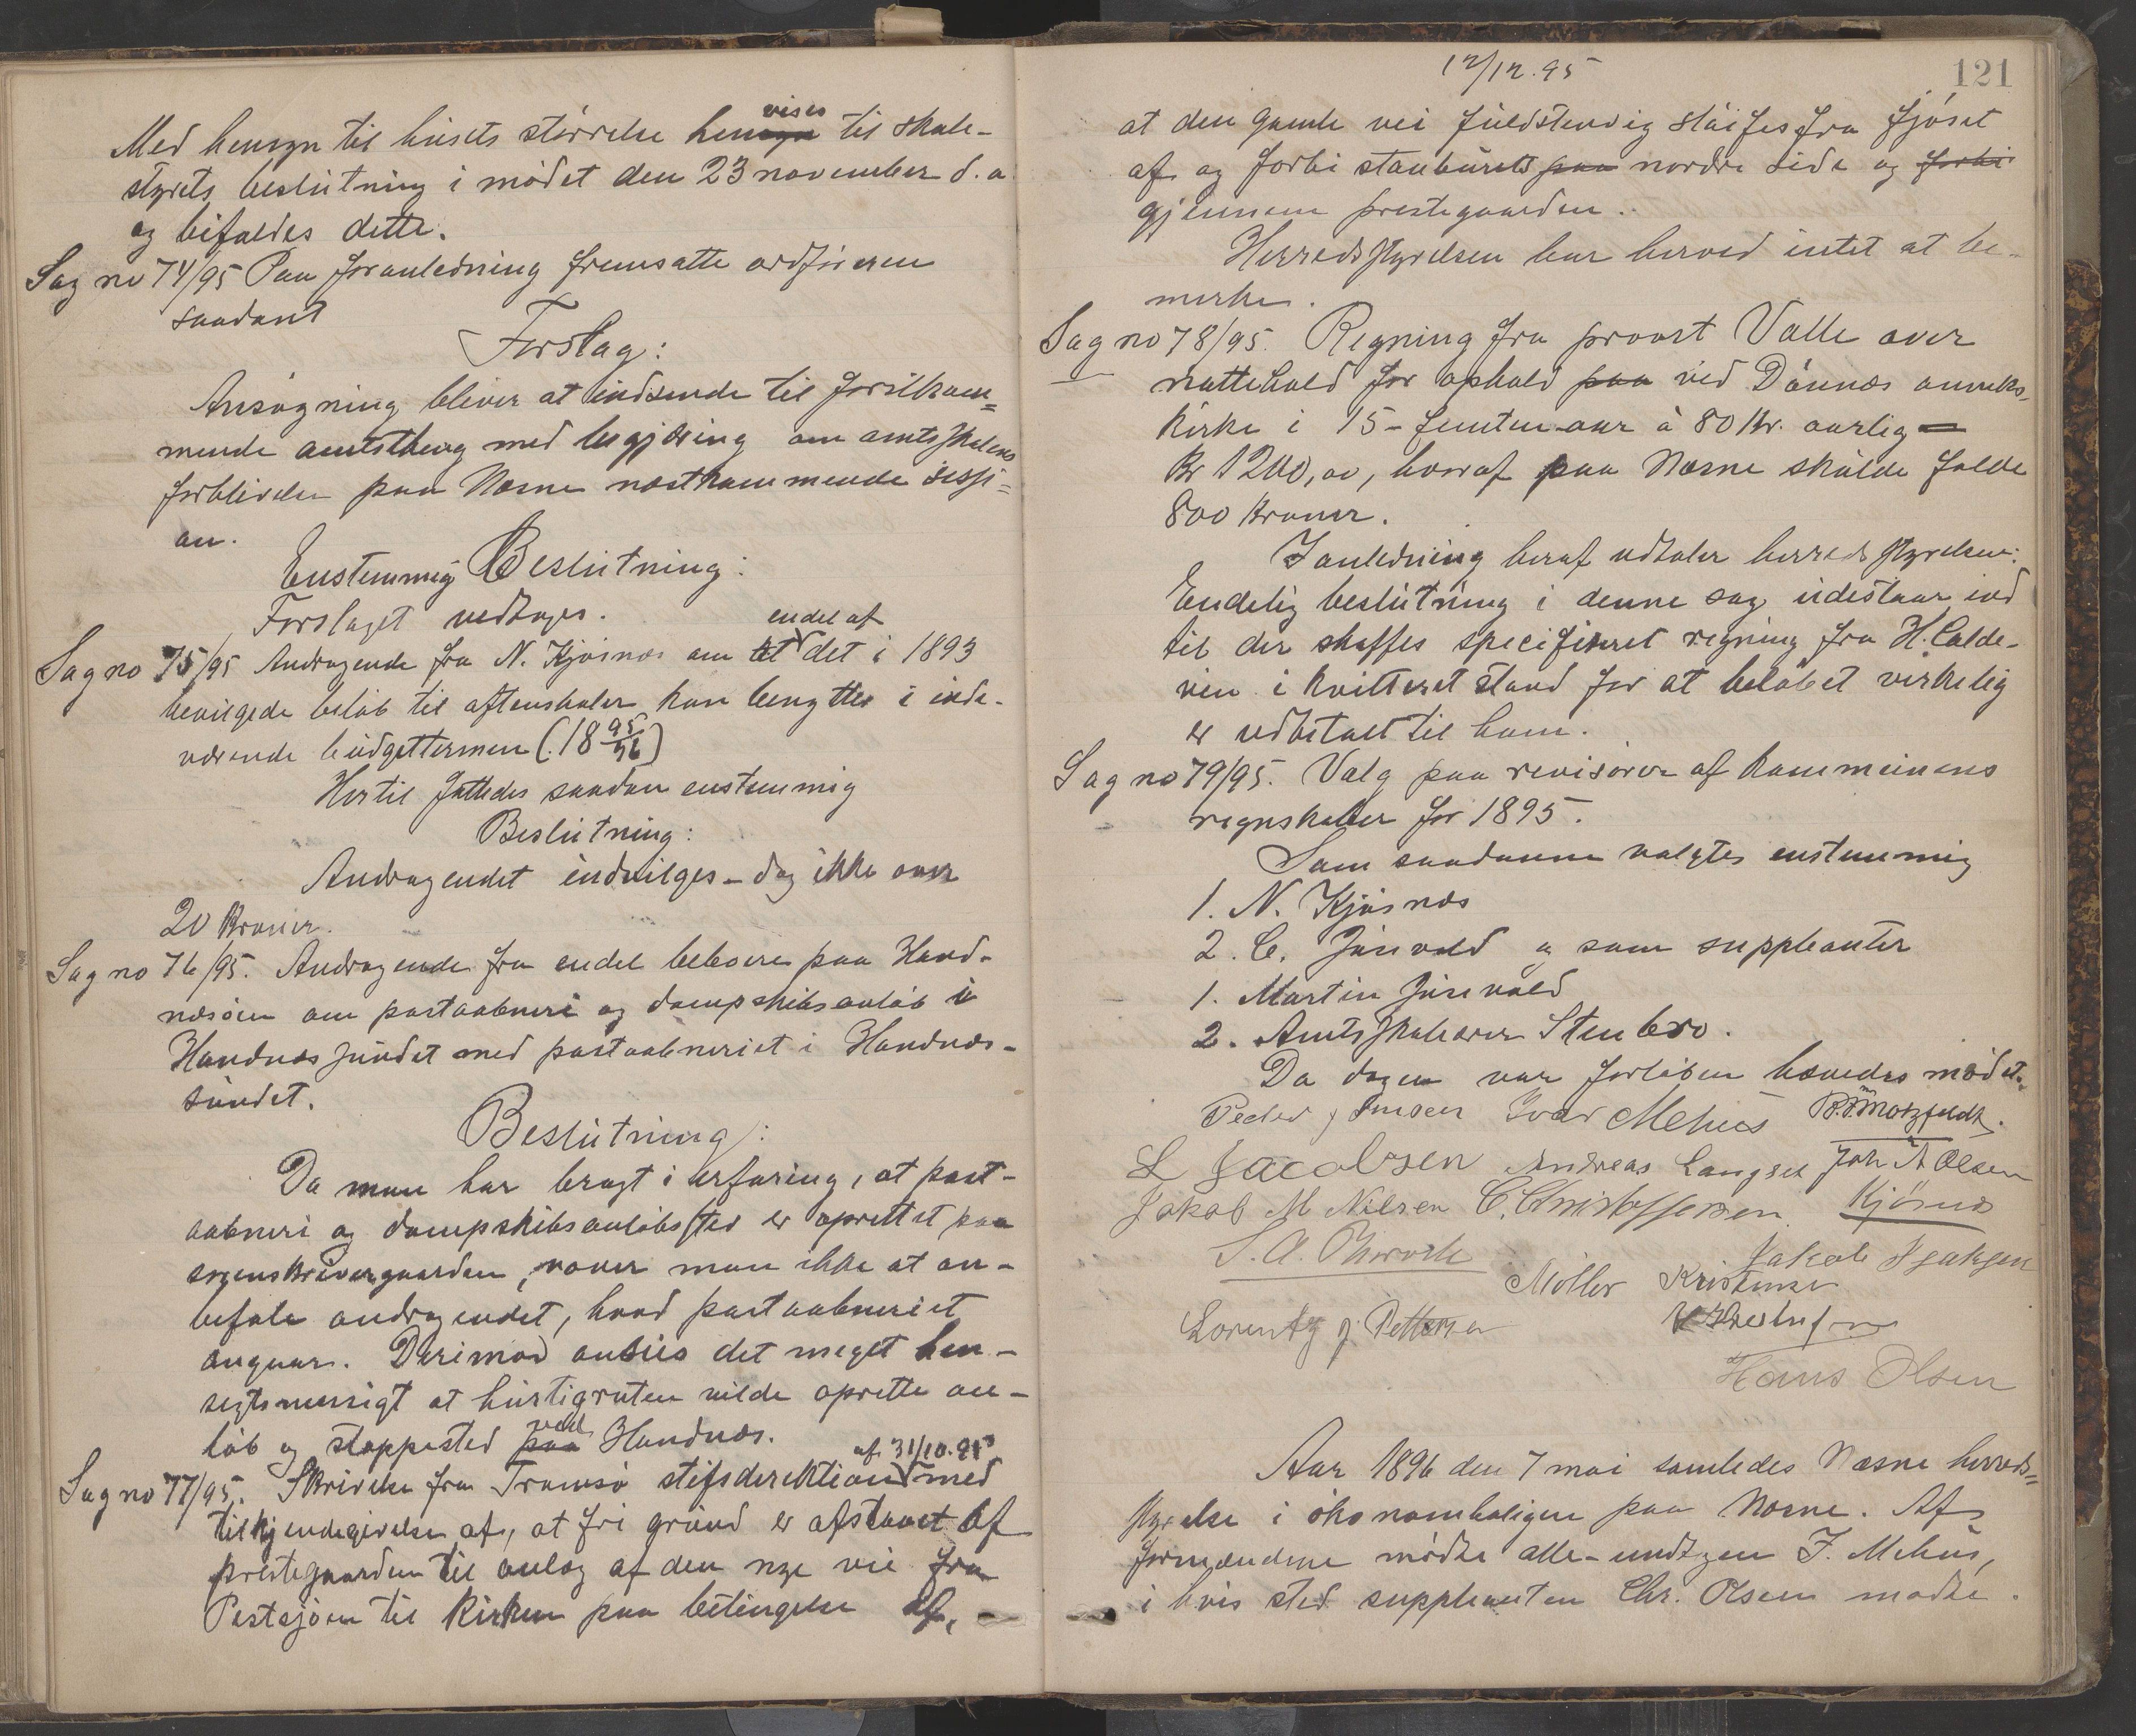 Med hensyn til husets størrelse henvises til skole-
styrets beslutning i mødet den 23 november d. a.
og bifaldes dette.
Sag no 74/95 Paa foranledning fremsatte ordføreren
saadant
Forslag:
Ansøgning bliver at indsende til førstkom=
mende amtsthing med begjæring om amtsskolens
forbliven paa Næsne næstkommende sessi=
on.
Enstemmig Beslutning:
Forslaget vedtages.
Sag no 75/95 Andragende fra N. Kjøsnæs om at endel af det i 1893
bevilgede beløb til aftenskoler kan benyttes i inde-
værende budgettermen (18 95/96)
Hertil fattedes saadan enstemmig
Beslutning:
Andragendet indvilges - dog ikke over
20 kroner.
Sag no 76/95. Andragende fra endel beboere paa Hand-
næsøen om postaabneri og dampskibsanløb i
Handnæssundet med postaabneriet i Handnæs-
sundet.
Beslutning:
Da man har bragt i erfaring, at post-
aabneri og dampskibsanløbssted er oprettet paa
sorenskrivergaarden, vover man ikke at an-
befale andragendet, hvad postaabneriet
angaar. Derimod ansees det meget hen-
sigtsmessigt at hurtigruten vilde oprette an-
løb og stoppested paa ved Handnæs.
Sag no 77/95. Skrivelse fra Tromsø stiftsdirektion af 31/10.95 med
tilkjendegivelse af, at fri grund er afstaaet af
prestegaarden til anlæg af den nye vei fra
Pestsjøen til kirken paa betingelse af,
12/12.95
121
at den gamle vei fuldstendig sløifes fra fjøset
af og forbi stauburets paa nordre side og forbi
gjennem prestegaarden.
Herredsstyrelsen har herved intet at be-
merke.
Sag no 78/95. Regning fra provst Valle over
nattehold for ophold paa ved Dønnæs anneks-
kirke i 15 - femten aar à 80 kr. aarlig =
kr 1200,oo, hvoraf paa Næsne skulde falde
800 kroner.
I anledning heraf udtaler herredsstyrelsen:
Endelig beslutning i denne sag udestaar ind
til der skaffes specificeret regning fra H. Colde-
vin i kvitteret stand for at beløbet virkelig
er udbetalt til ham.
Sag no 79/95. Valg paa revisorer af kommunens
regnskaber for 1895.
Som saadanne valgtes enstemmig
1. N. Kjøsnæs
2. C. Jürvold og som suppleanter
1. Martin Jürvold
2. Amtsskolelærer Stenbro.
Da dagen var forløben hævedes mødet.
Peder Jensen Ivar Mehus Motzfeldt.
L Jacobsen Andreas Langset Joh A Olsen
Jakob M Nilsen C. Christoffersen. Kjøsnæs
Jakob Isaksen
Møller Kristensen
Lorentz J. Pettersen
Hans Olsen
Aar 1896 den 7 mai samledes Næsne herreds=
styrelse i økonomboligen paa Næsne. Af
formændene mødte alle - undtagen I. Mehus,
i hvis sted suppleanten Chr. Olsen mødte.